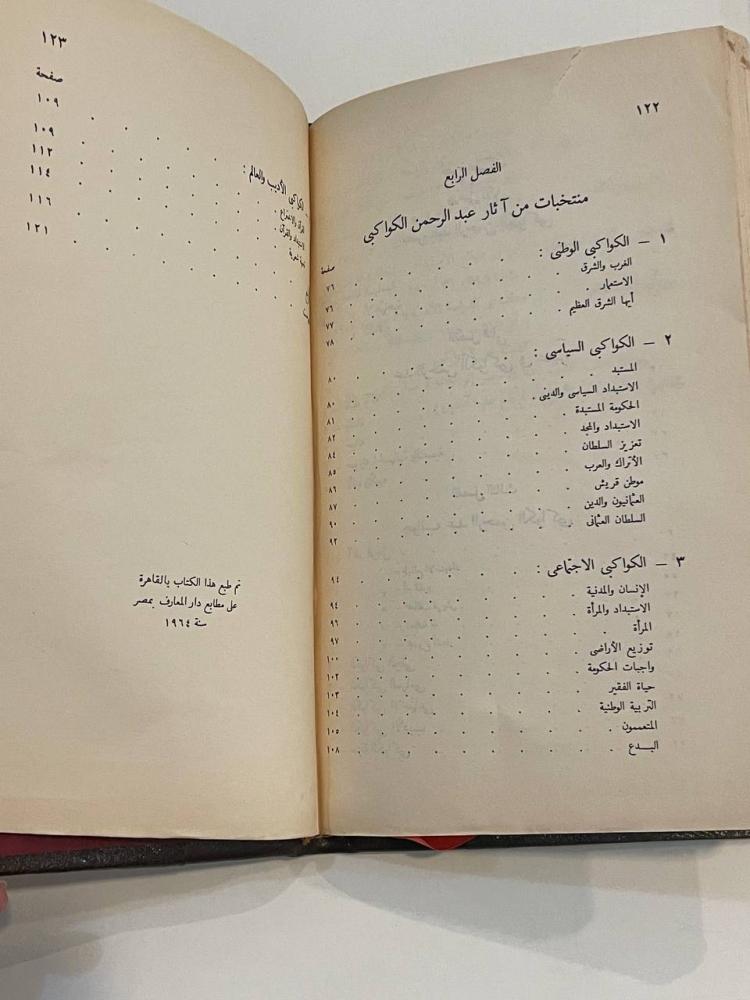 ١٢٢
الفصل الرابع
منتخبات من آثار عبد الرحمن الكواكبى
صفحة
١ – الكواكبى الوطنى : ٧٦
الغرب والشرق ٧٦
الاستعمار ٧٧
أيها الشرق العظيم ٧٨
٢ – الكواكبى السياسى : ٨٠
المستبد ٨٠
الاستبداد السياسى والدينى ٨١
الحكومة المستبدة ٨٢
الاستبداد والمجد ٨٤
تعزيز السلطان ٨٥
الأتراك والعرب ٨٦
موطن قريش ٨٧
العثمانيون والدين ٩٠
السلطان العثمانى ٩٢
٣ – الكواكبى الاجتماعى : ٩٤
الإنسان والمدنية ٩٤
الاستبداد والمرأة ٩٦
المرأة ٩٧
توزيع الأراضى ١٠٠
واجبات الحكومة ١٠٢
حياة الفقير ١٠٣
التربية الوطنية ١٠٤
المتعممون ١٠٥
البدع ١٠٨
١٢٣
صفحة
الكواكبى الأديب والعالم : ١٠٩
١٠٩
١١٢
١١٤
١١٦
١٢١
تم طبع هذا الكتاب بالقاهرة
على مطابع دار المعارف بمصر
سنة ١٩٦٤